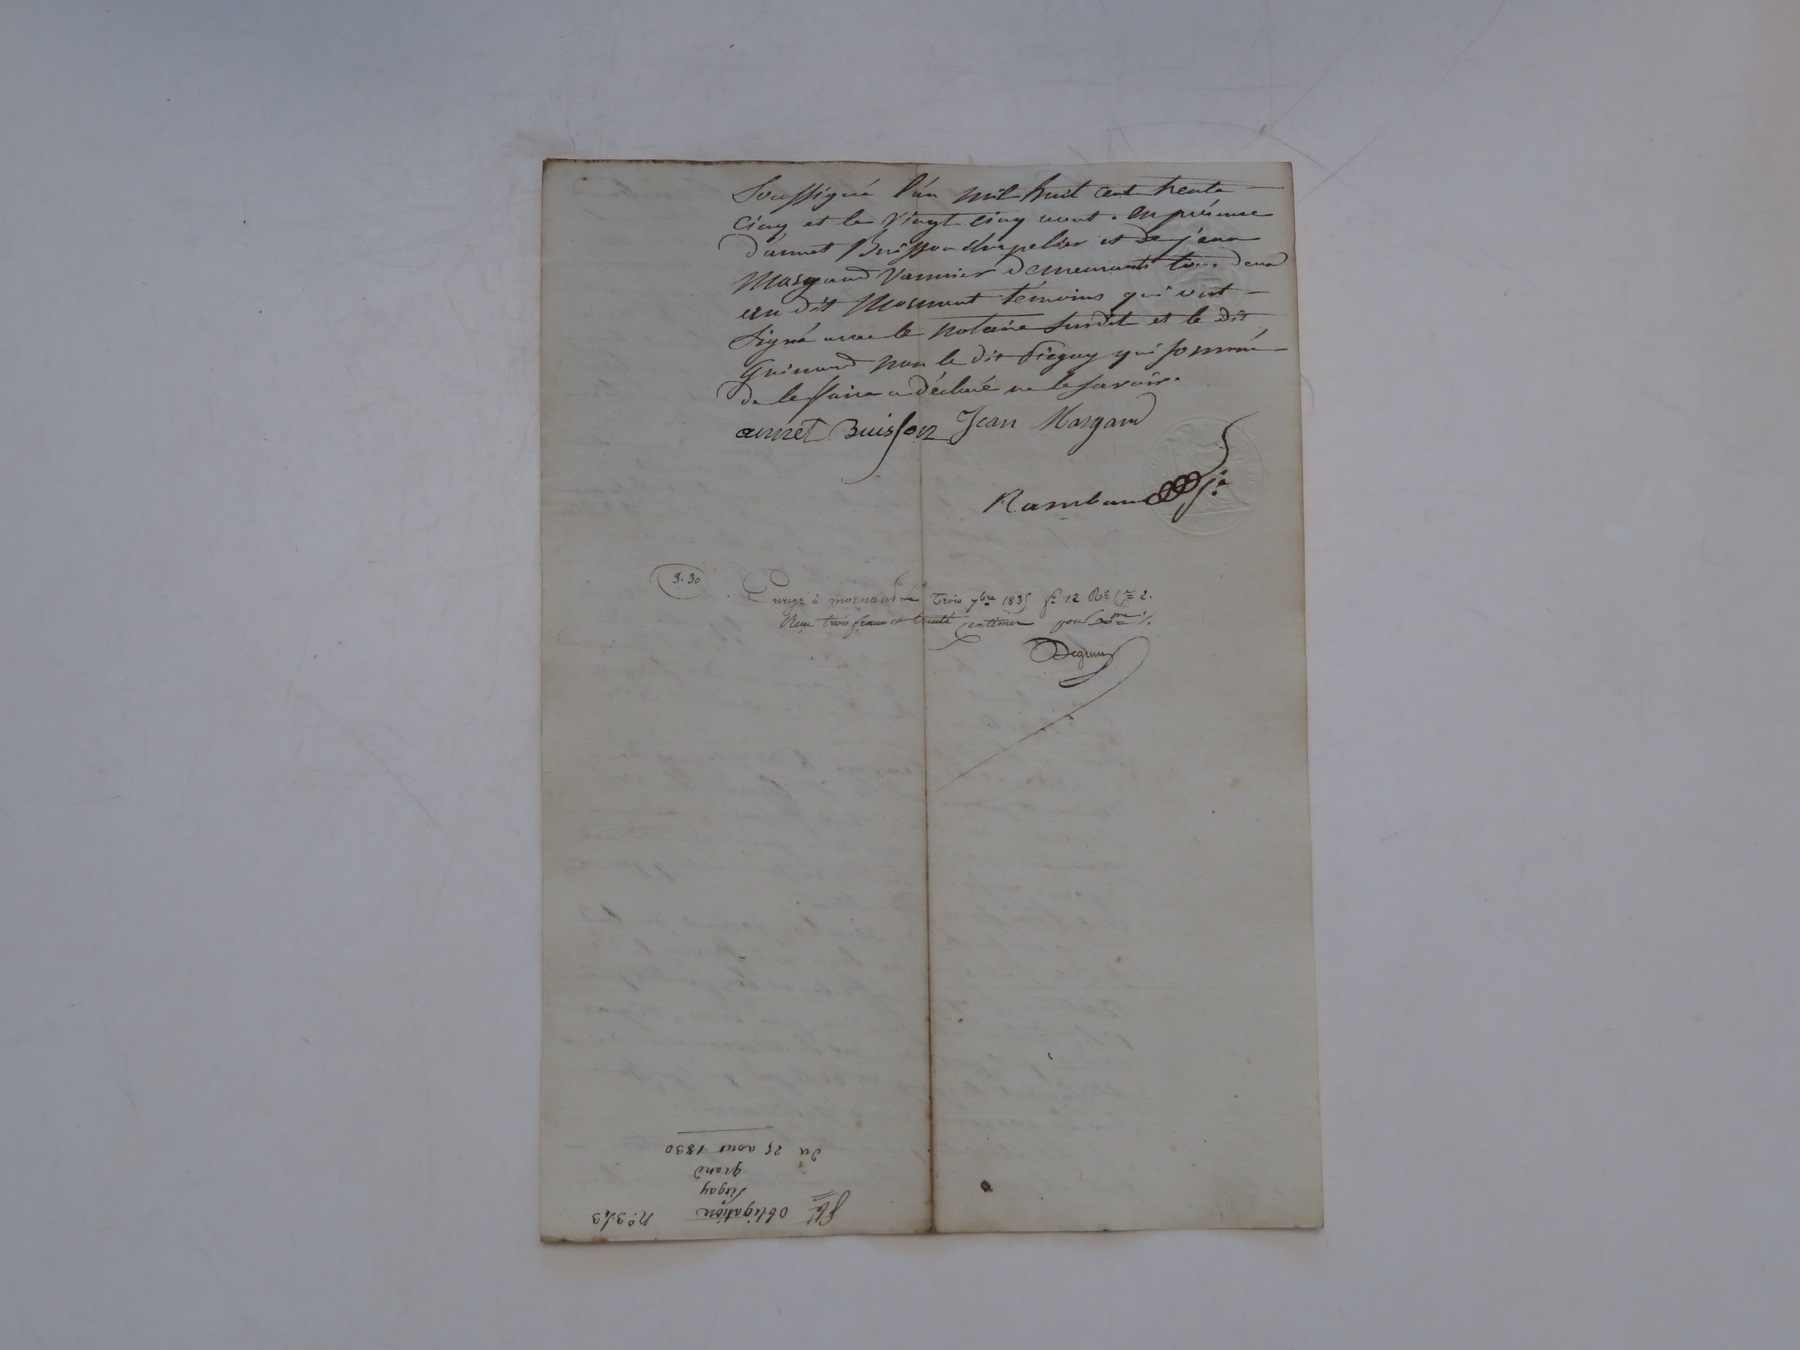 Soussigné l'an mil huit cent trente
cinq et le vingt cinq aout. en présence
d'annet Buisson chapelier et de jean
Margand Vannier demeurants tous deux
au dit Mornant témoins qui ont
signé avec le notaire susdit et le dit
Guinand non le dit Piegay qui sommé
de le faire a déclaré ne le savoir.
annet Buisson Jean Margand
Rambaud
3.30
à mornant le trois 7bre 1835 fo 12 Ro Ce 2.
Reçu trois francs et trente centimes pour
No. 343
obligation
Piegay
grand
du 25 aout 1830